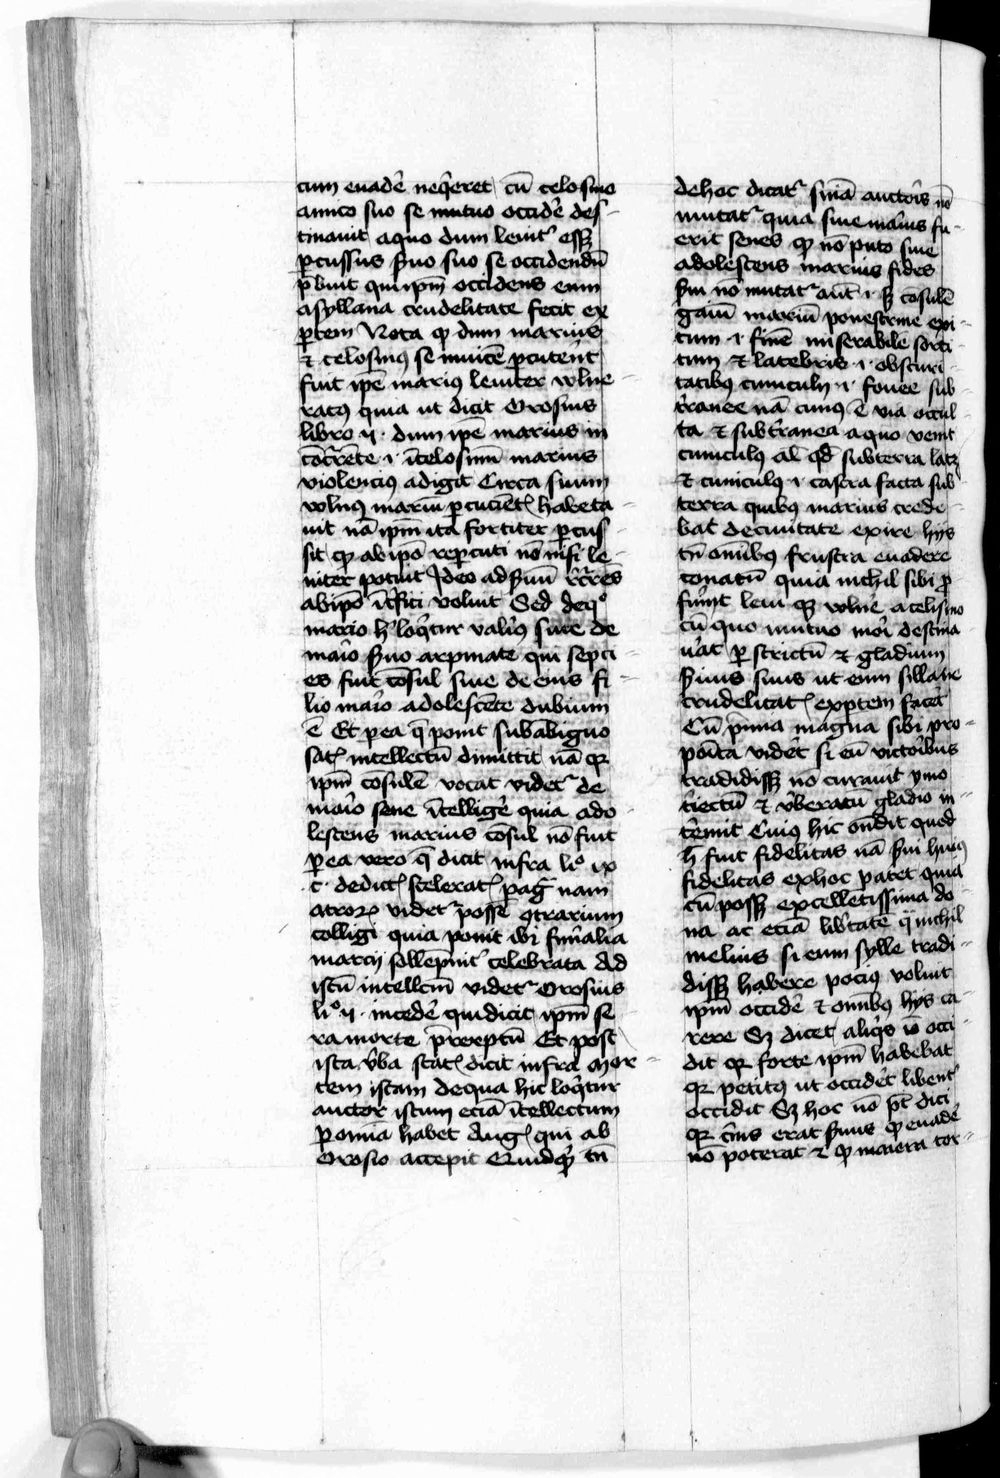 cum euadē neq̄eret cū celosino
amico suo se mutuo occidē des-
tinauit aquo dum leuit᷑ esset
ꝑcussus s̄uo suo se occidendū
p̄buit qui ipm̄ occidens eum
asyllana crudelitate fecit ex
ꝑtem Nota ꝙ dum marius
⁊ celosinꝰ se inuicē ꝑcuterēt
fuit ipē mariꝰ leuiter vlne-
ratꝰ quia ut dicit Orosius
libro ij · dum ipē marius in
marius
violencius adigit Circa suum
vlnꝰ mariū ꝑcucient᷑ habeta-
uit nā ipm̄ ita fortiter ꝑcus-
sit ꝙ ab ipō reꝑcuti nō nisi le-
uiter potuit Ideo ad s̄uū
abipō īt̄fici voluit Sed deq̊
mario h̄ loq̄tur valiꝰ siue de
maīo s̄uo arpinate qui septi-
es fuit cōsul siue de eius fi-
lio maīo adolescēte dubium
ē Et ꝑea q̄ ponit subābiguo
sat᷑ intellectū dimittit nā qꝛ
ipm̄ cōsulē vocat videt᷑ de
maīo sene ītelligē quia ado
lescens marius cōsul nō fuit
ꝑea vero q̄ dicit infra liº ix
c· dedict᷑ scelerat᷑ paḡ nam
atroꝝ videt᷑ posse ꝯtrarium
colligi quia ponit ibi funˀalia
marcij sollepnitˀ celebrata Ad
istū intellcm̄ videt᷑ Orosius
liº ij · incedē qui dicit ipm̄ se
ra morte p̄reptū Et post
ista v̄ba stat᷑ dicit infra mor-
tem istam dequa hic loq̄tur
auctor istum eciā ītellectum
ꝑ omīa habet Aug᷑ qui ab
Orosio accepit Quidqꝫ tn̄
dehoc dicat᷑ sniā auctoīs nō
mutat᷑ quia siue maīus fu-
erit senes ꝙ nō puto siue
adolescens marius fides
s̄ui nō mutat᷑ aūt · i · sꝫ cōsulē
gaiū mariū
tum · i · finē miserabilē sorti-
tum ⁊ latebris · i · obscuri-
tatibꝰ cuniculi · i · fouee sub-
t̄ranee nā cunꝰ ē via occul-
ta ⁊ subt̄ranea aquo venit
cuniculꝰ al̄ qd̄ subterra latꝫ
⁊ cuniculꝰ · i · casca facta sub
terra quibꝰ marius crede-
bat deciuitate exire hijs
tn̄ omībꝰ frustra euadere
conatū quia nichil sibi ꝓ
fuīnt leui qꝫ vlnē acelisino
cū quo mutuo moī destina
uāt ꝑ strictū ⁊ gladium
s̄uius suus ut eum sillane
crudelitat᷑ exꝑtem facēt
Cū p̄mia magna sibi pro-
poīta vidēt si eū victoībus
tradidisset nō curauit ymo
⁊ v̄beratū gladio in-
t̄emit Cuiꝰ hic on̄dit quod
h̄ fuit fidelitas nā s̄ui huiꝰ
fidelitas exhoc patet quia
cū posset excellētissima do-
na ac eciā lib̄tatē q̄ nichil
melius si eum sylle tradi-
disset habere pociꝰ voluit
ipm̄ occidē ⁊ omībꝰ hijs ca-
rere Sꝫ dicet aliq̄s iō occi-
dit qꝛ forte ipm̄ habebat
qꝛ petitꝰ ut occidēt libent᷑
occidit Sꝫ hoc nō p̄t dici
qꝛ c̄tus erat s̄uus ꝙ euadē
nō poterat ⁊ ꝙ maiera tor-